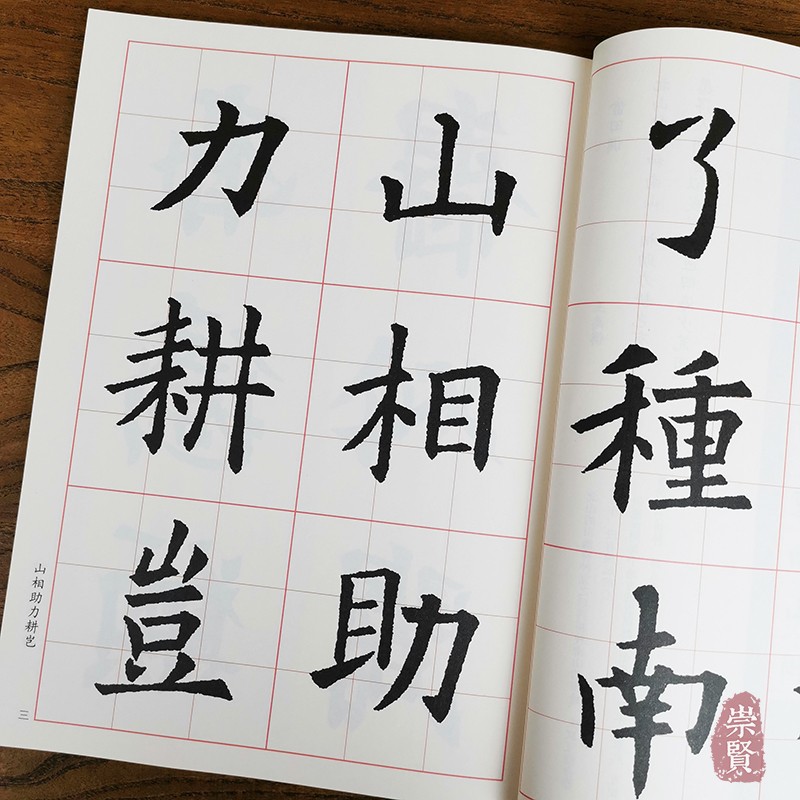 了種南
山相助
力耕豈
山相助力耕岂
三
崇賢